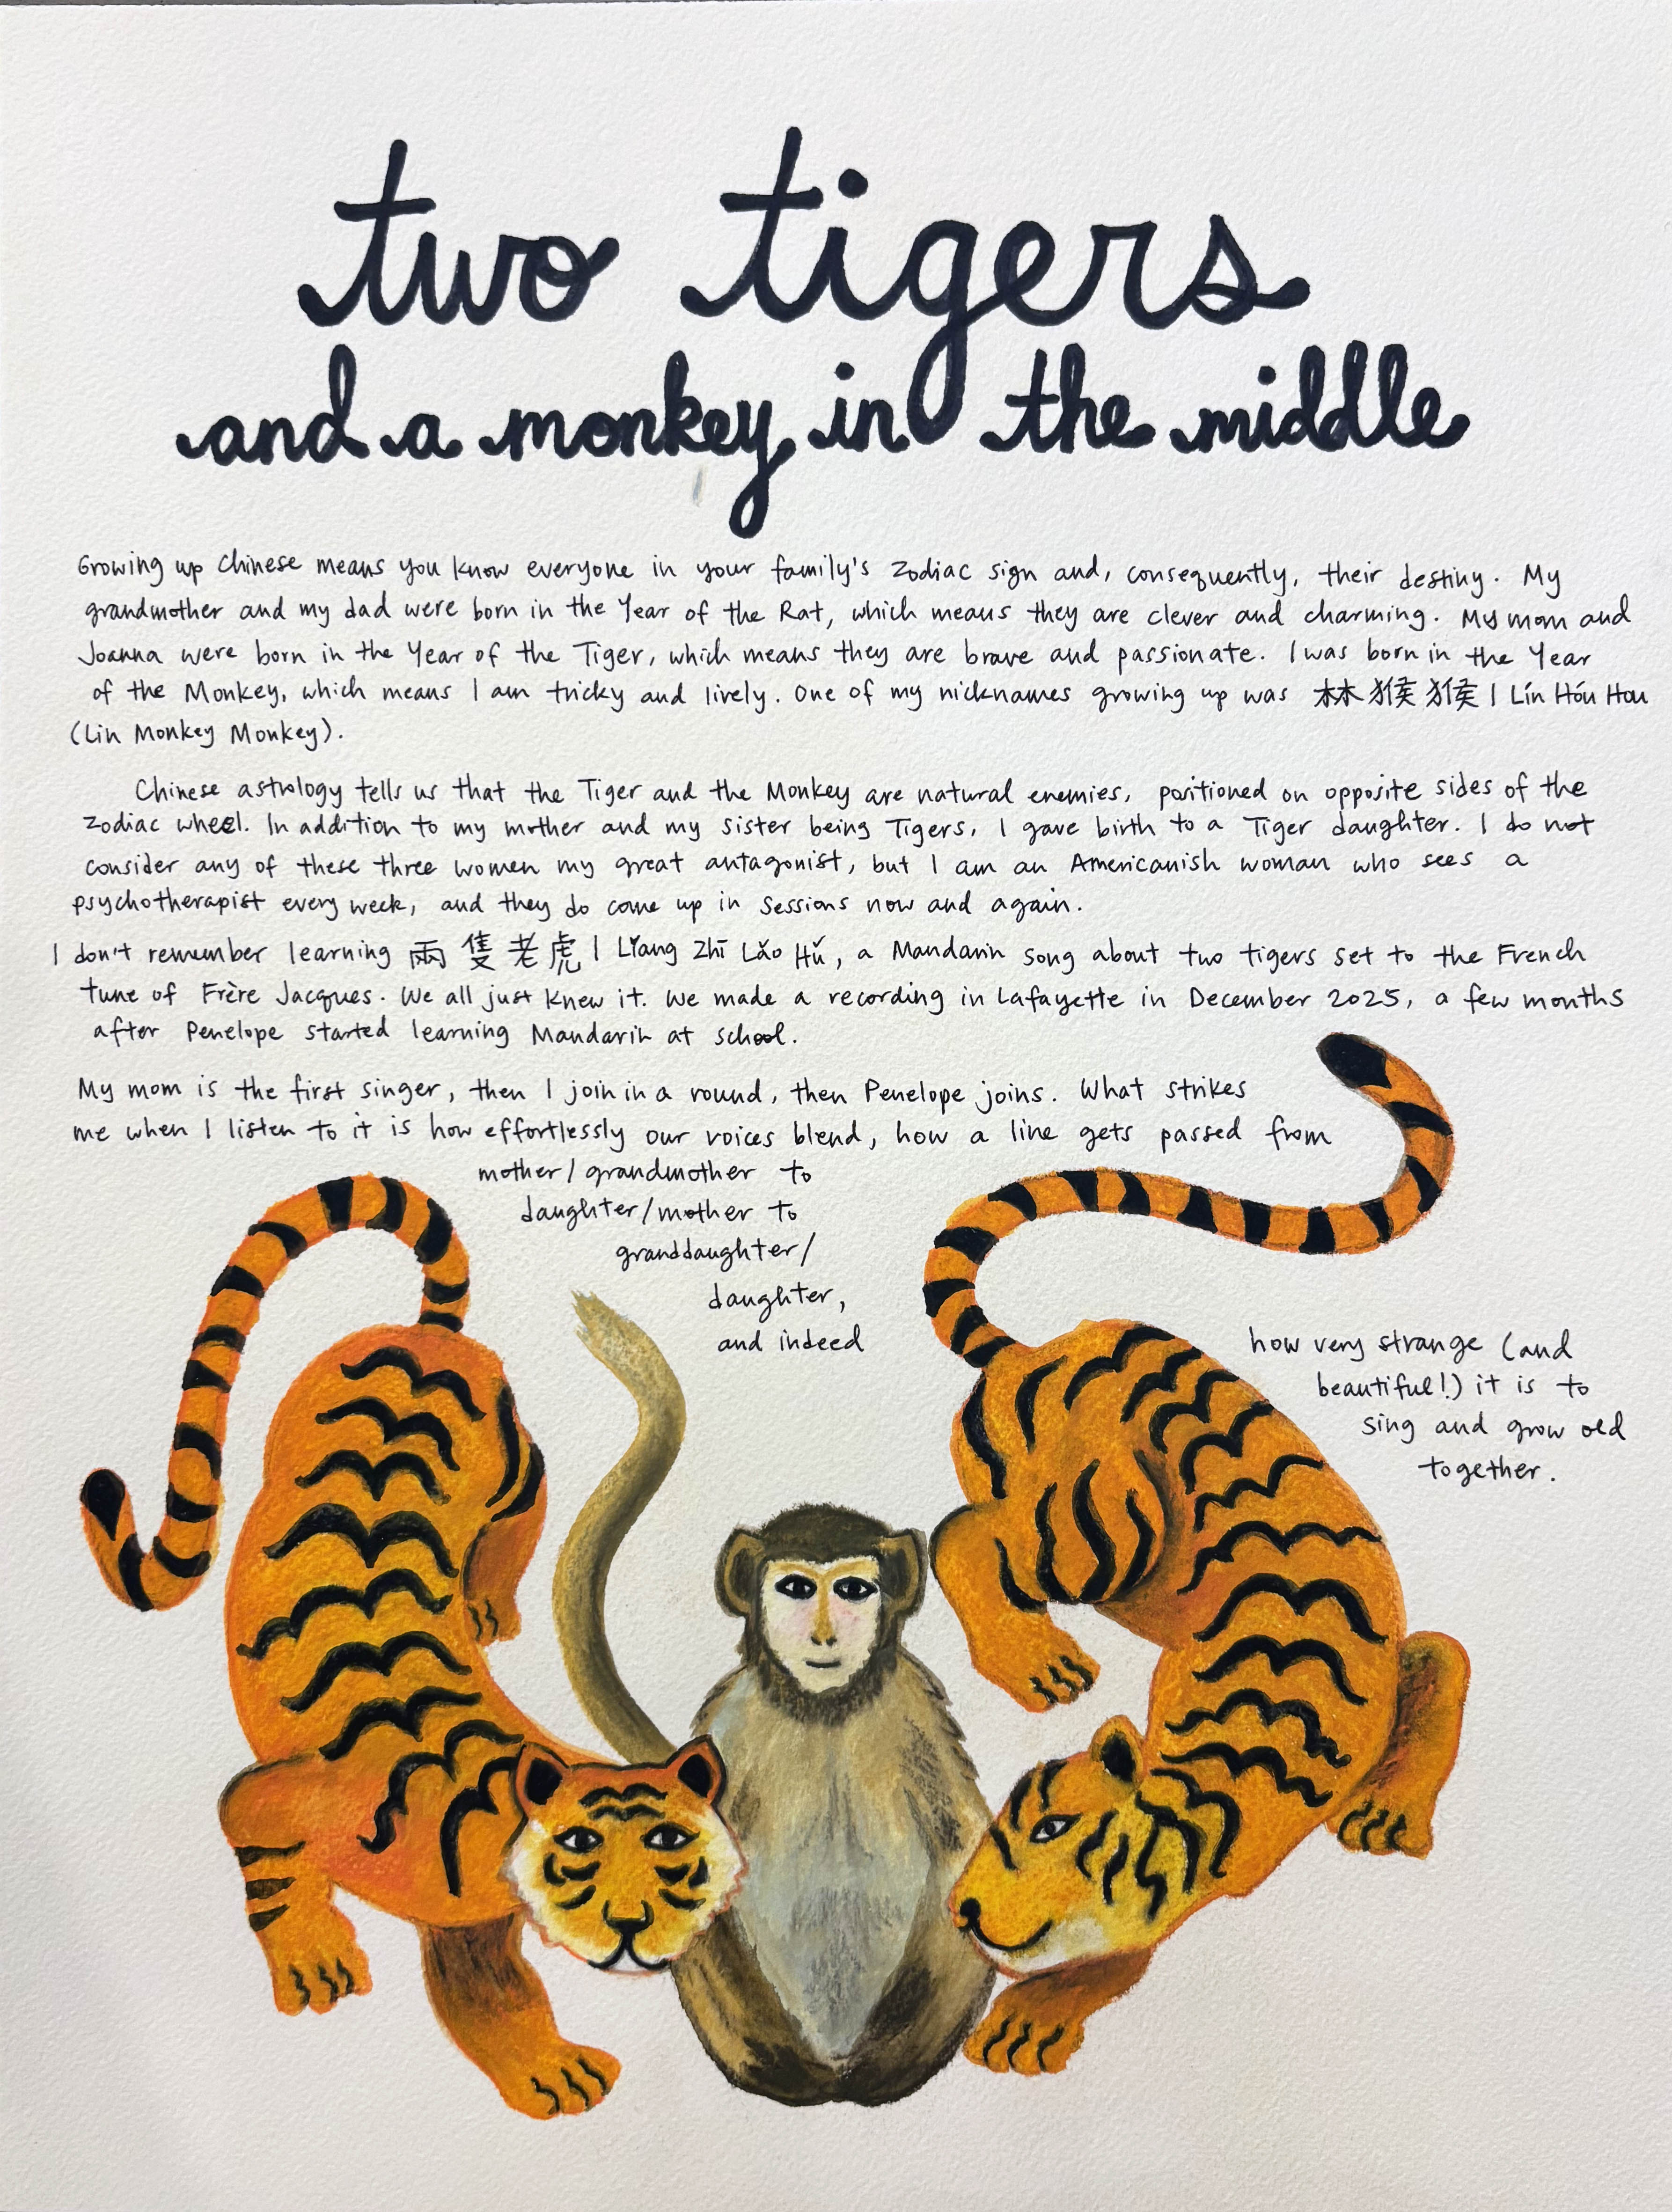 two tigers
and a monkey in the middle
Growing up Chinese means you know everyone in your family's zodiac sign and, consequently, their destiny. My
grandmother and my dad were born in the Year of the Rat, which means they are clever and charming. My mom and
Joanna were born in the Year of the Tiger, which means they are brave and passionate. I was born in the Year
of the Monkey, which means I am tricky and lively. One of my nicknames growing up was 林猴猴 | Lín Hóu Hou
(Lin Monkey Monkey).
Chinese astrology tells us that the Tiger and the Monkey are natural enemies, positioned on opposite sides of the
zodiac wheel. In addition to my mother and my sister being Tigers, I gave birth to a Tiger daughter. I do not
consider any of these three women my great antagonist, but I am an Americanish woman who sees a
psychotherapist every week, and they do come up in sessions now and again.
I don't remember learning 兩隻老虎 | Liǎng Zhī Lǎo Hǔ, a Mandarin song about two tigers set to the French
tune of Frère Jacques. We all just knew it. We made a recording in Lafayette in December 2025, a few months
after Penelope started learning Mandarin at school.
My mom is the first singer, then I join in a round, then Penelope joins. What strikes
me when I listen to it is how effortlessly our voices blend, how a line gets passed from
mother/grandmother to
daughter/mother to
granddaughter/
daughter,
and indeed
how very strange (and
beautiful!) it is to
sing and grow old
together.